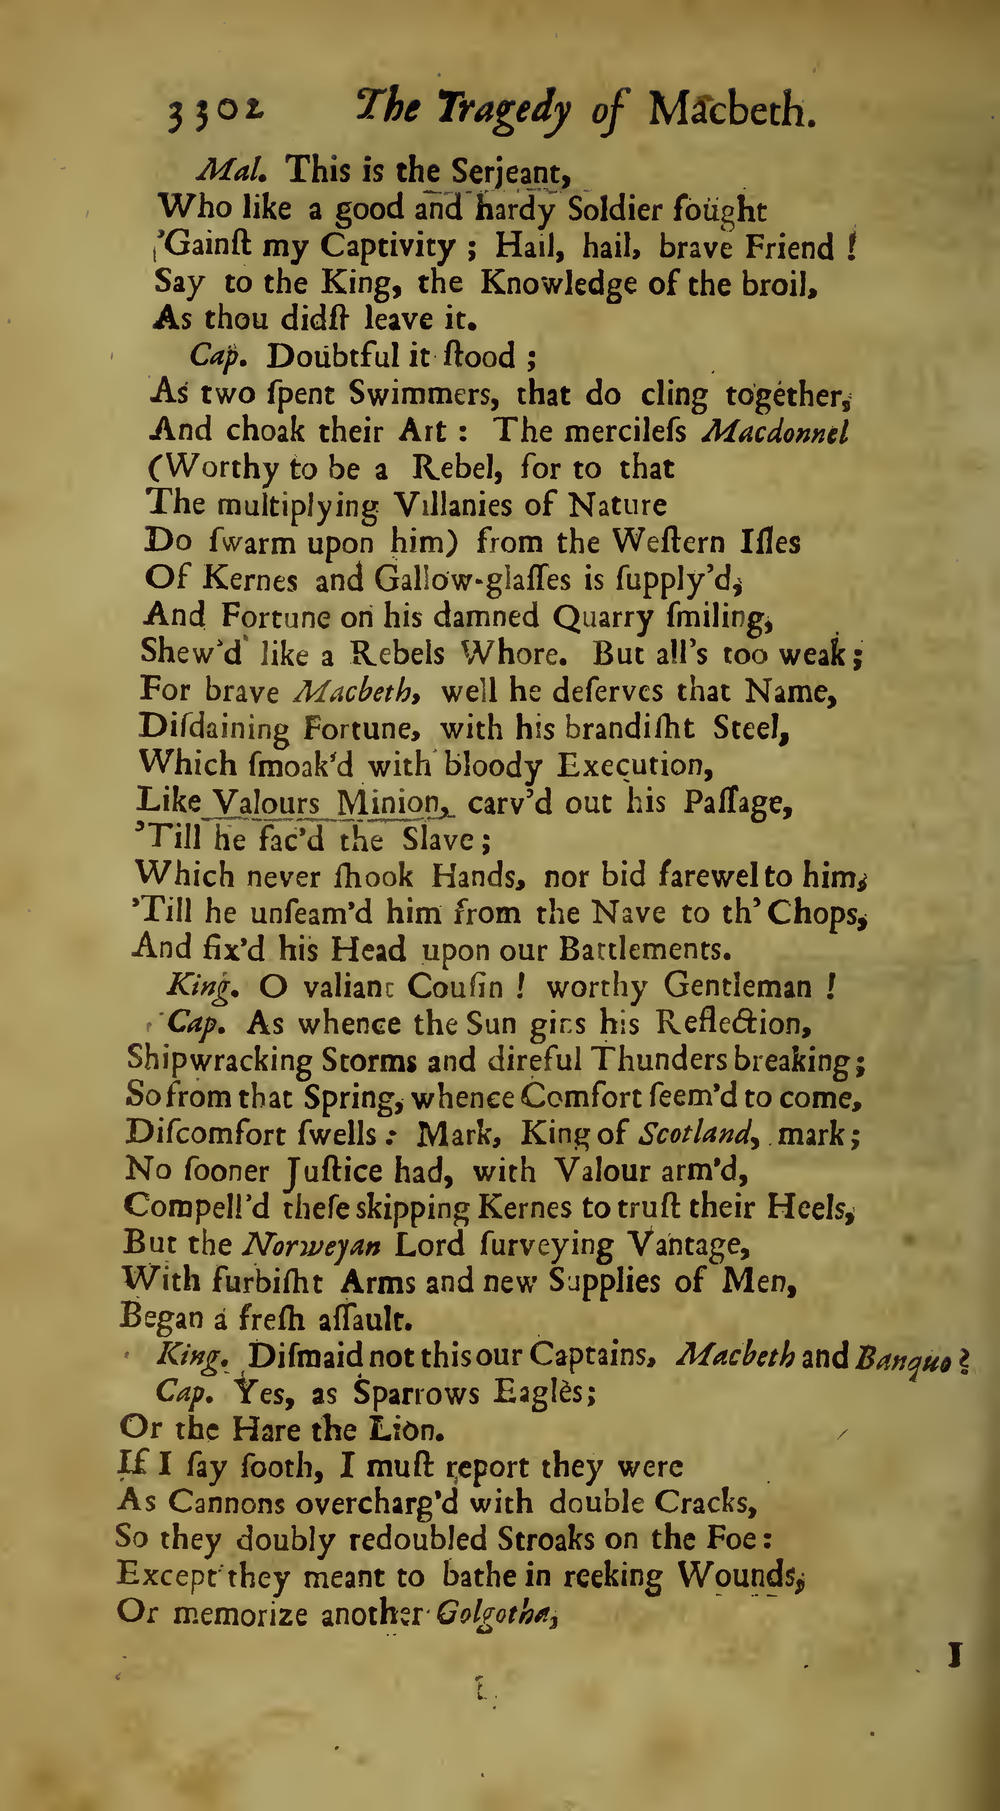 3302 The Tragedy of Macbeth.
Mal. This is the Serjeant,
Who like a good and hardy Soldier fought
'Gainſt my Captivity ; Hail, hail, brave Friend !
Say to the King, the Knowledge of the broil,
As thou didſt leave it.
Cap. Doubtful it ſtood ;
As two ſpent Swimmers, that do cling together,
And choak their Art : The mercileſs Macdonnel
(Worthy to be a Rebel, for to that
The multiplying Villanies of Nature
Do ſwarm upon him) from the Weſtern Iſles
Of Kernes and Gallow-glaſſes is ſupply'd,
And Fortune on his damned Quarry ſmiling,
Shew'd like a Rebels Whore. But all's too weak ;
For brave Macbeth, well he deſerves that Name,
Diſdaining Fortune, with his brandiſht Steel,
Which ſmoak'd with bloody Execution,
Like Valours Minion, carv'd out his Paſſage,
'Till he fac'd the Slave ;
Which never ſhook Hands, nor bid farewel to him,
'Till he unſeam'd him from the Nave to th' Chops,
And fix'd his Head upon our Battlements.
King. O valiant Couſin ! worthy Gentleman !
Cap. As whence the Sun gins his Reflection,
Shipwracking Storms and direful Thunders breaking ;
So from that Spring, whence Comfort ſeem'd to come,
Diſcomfort ſwells : Mark, King of Scotland, mark ;
No ſooner Juſtice had, with Valour arm'd,
Compell'd theſe skipping Kernes to truſt their Heels,
But the Norweyan Lord ſurveying Vantage,
With furbiſht Arms and new Supplies of Men,
Began a freſh aſſault.
King. Diſmaid not this our Captains, Macbeth and Banquo ?
Cap. Yes, as Sparrows Eagles ;
Or the Hare the Lion.
If I ſay ſooth, I muſt report they were
As Cannons overcharg'd with double Cracks,
So they doubly redoubled Stroaks on the Foe :
Except they meant to bathe in reeking Wounds,
Or memorize another Golgotha,
I